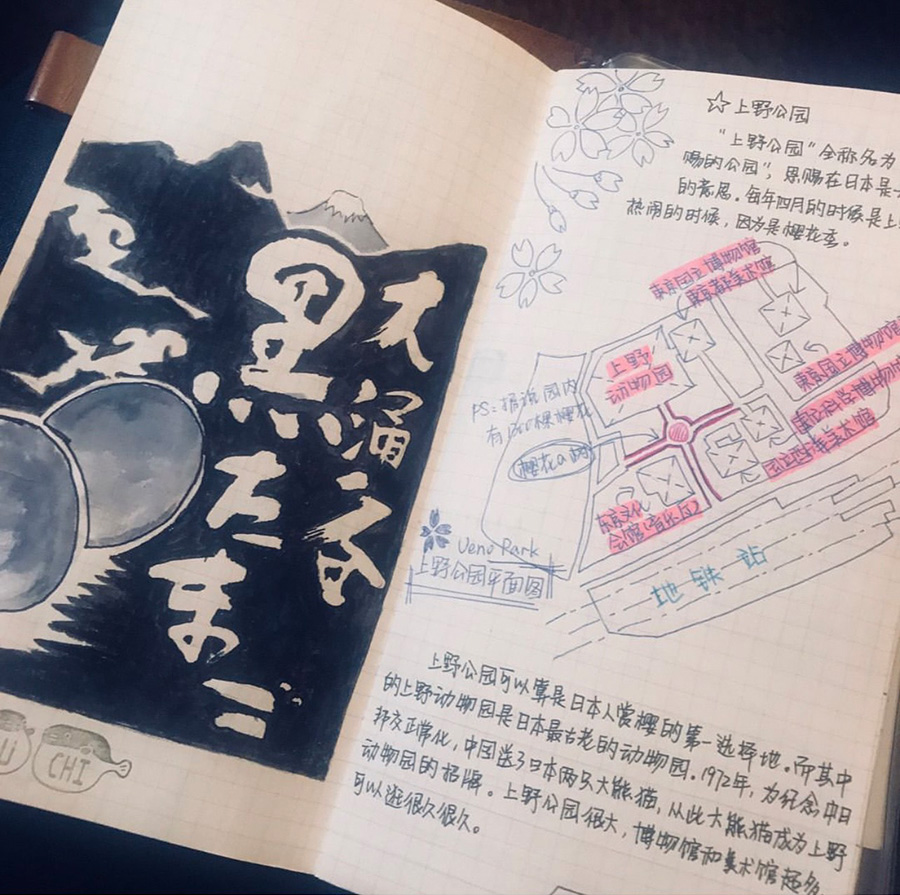 大涌谷
黒たまご
U
CHI
☆上野公园
"上野公园"全称名为
赐的公园",恩赐在日本是
的意思。每年四月的时候是上
热闹的时候,因为是樱花季。
東京国立博物馆
東京都美术馆
上野
动物园
東京国立博物馆
PS:据说园内
有1200棵樱花
樱花の
东京文化
会馆(音乐厅)
Ueno Park
上野公园平面图
地铁站
上野公园可以算是日本人赏樱的第一选择地。而其中
的上野动物园是日本最古老的动物园。1972年,为纪念中日
邦交正常化,中国送了日本两只大熊猫,从此大熊猫成为上野
动物园的招牌。上野公园很大,博物馆和美术馆超多
可以逛很久很久。